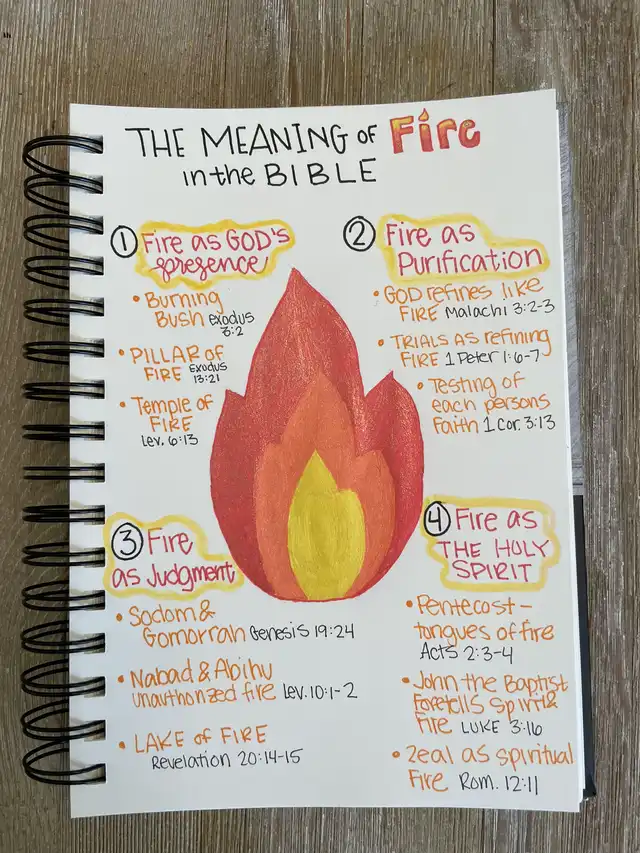 THE MEANING OF Fire
in the BIBLE
① Fire as GOD'S
presence
• Burning
Bush exodus
3:2
• PILLAR OF
FIRE Exodus
13:21
• Temple of
FIRE
Lev. 6:13
② Fire as
Purification
• GOD refines like
FIRE Malachi 3:2-3
• TRIALS AS refining
FIRE 1 Peter 1:6-7
• Testing of
each persons
Faith 1 Cor. 3:13
③ Fire
as Judgment
• Sodom &
Gomorrah Genesis 19:24
• Nabad & Abihu
unauthorized fire Lev. 10:1-2
• LAKE OF FIRE
Revelation 20:14-15
④ Fire as
THE HOLY
SPIRIT
• Pentecost -
tongues of fire
Acts 2:3-4
• John the Baptist
Foretells Spirit &
Fire LUKE 3:16
• Zeal as spiritual
Fire Rom. 12:11